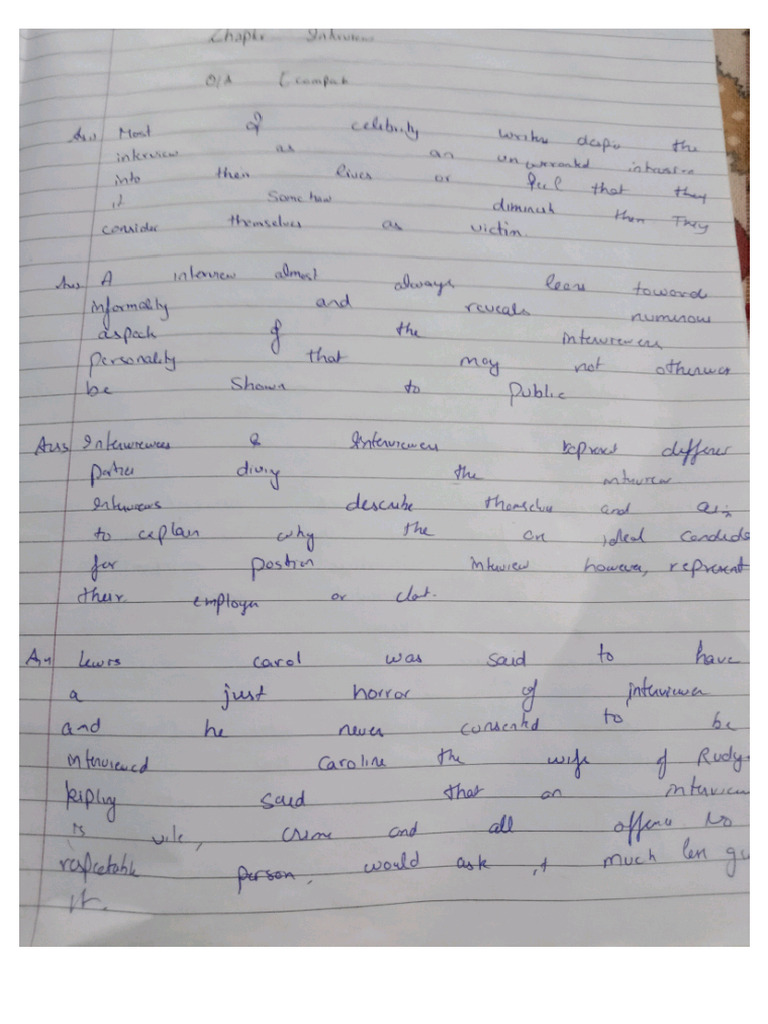 Chapter Interview
Q/A
Ans1 Most of celebrity writers the
interview as an unwanted intrusion
into their lives or feel that they
it Some how diminish them They
consider themselves as victim.
Ans A interview almost always leans toward
informality and reveals numerous
aspects of the interviewees
personality that may not otherwise
be Shown to Public
Ans3 Interviewees & Interviewers represent different
parties the interview
Interviews describe themselves and
to explain why the are ideal candida
for position interview however, represent
their employer or
An4 Lewis carol was said to have
a just horror of interviewer
and he never consented to be
interviewed Caroline the wife of Rudy
kipling said that an interview
is vile, crime and all offence No
respectable person, would ask it much len gi
it.